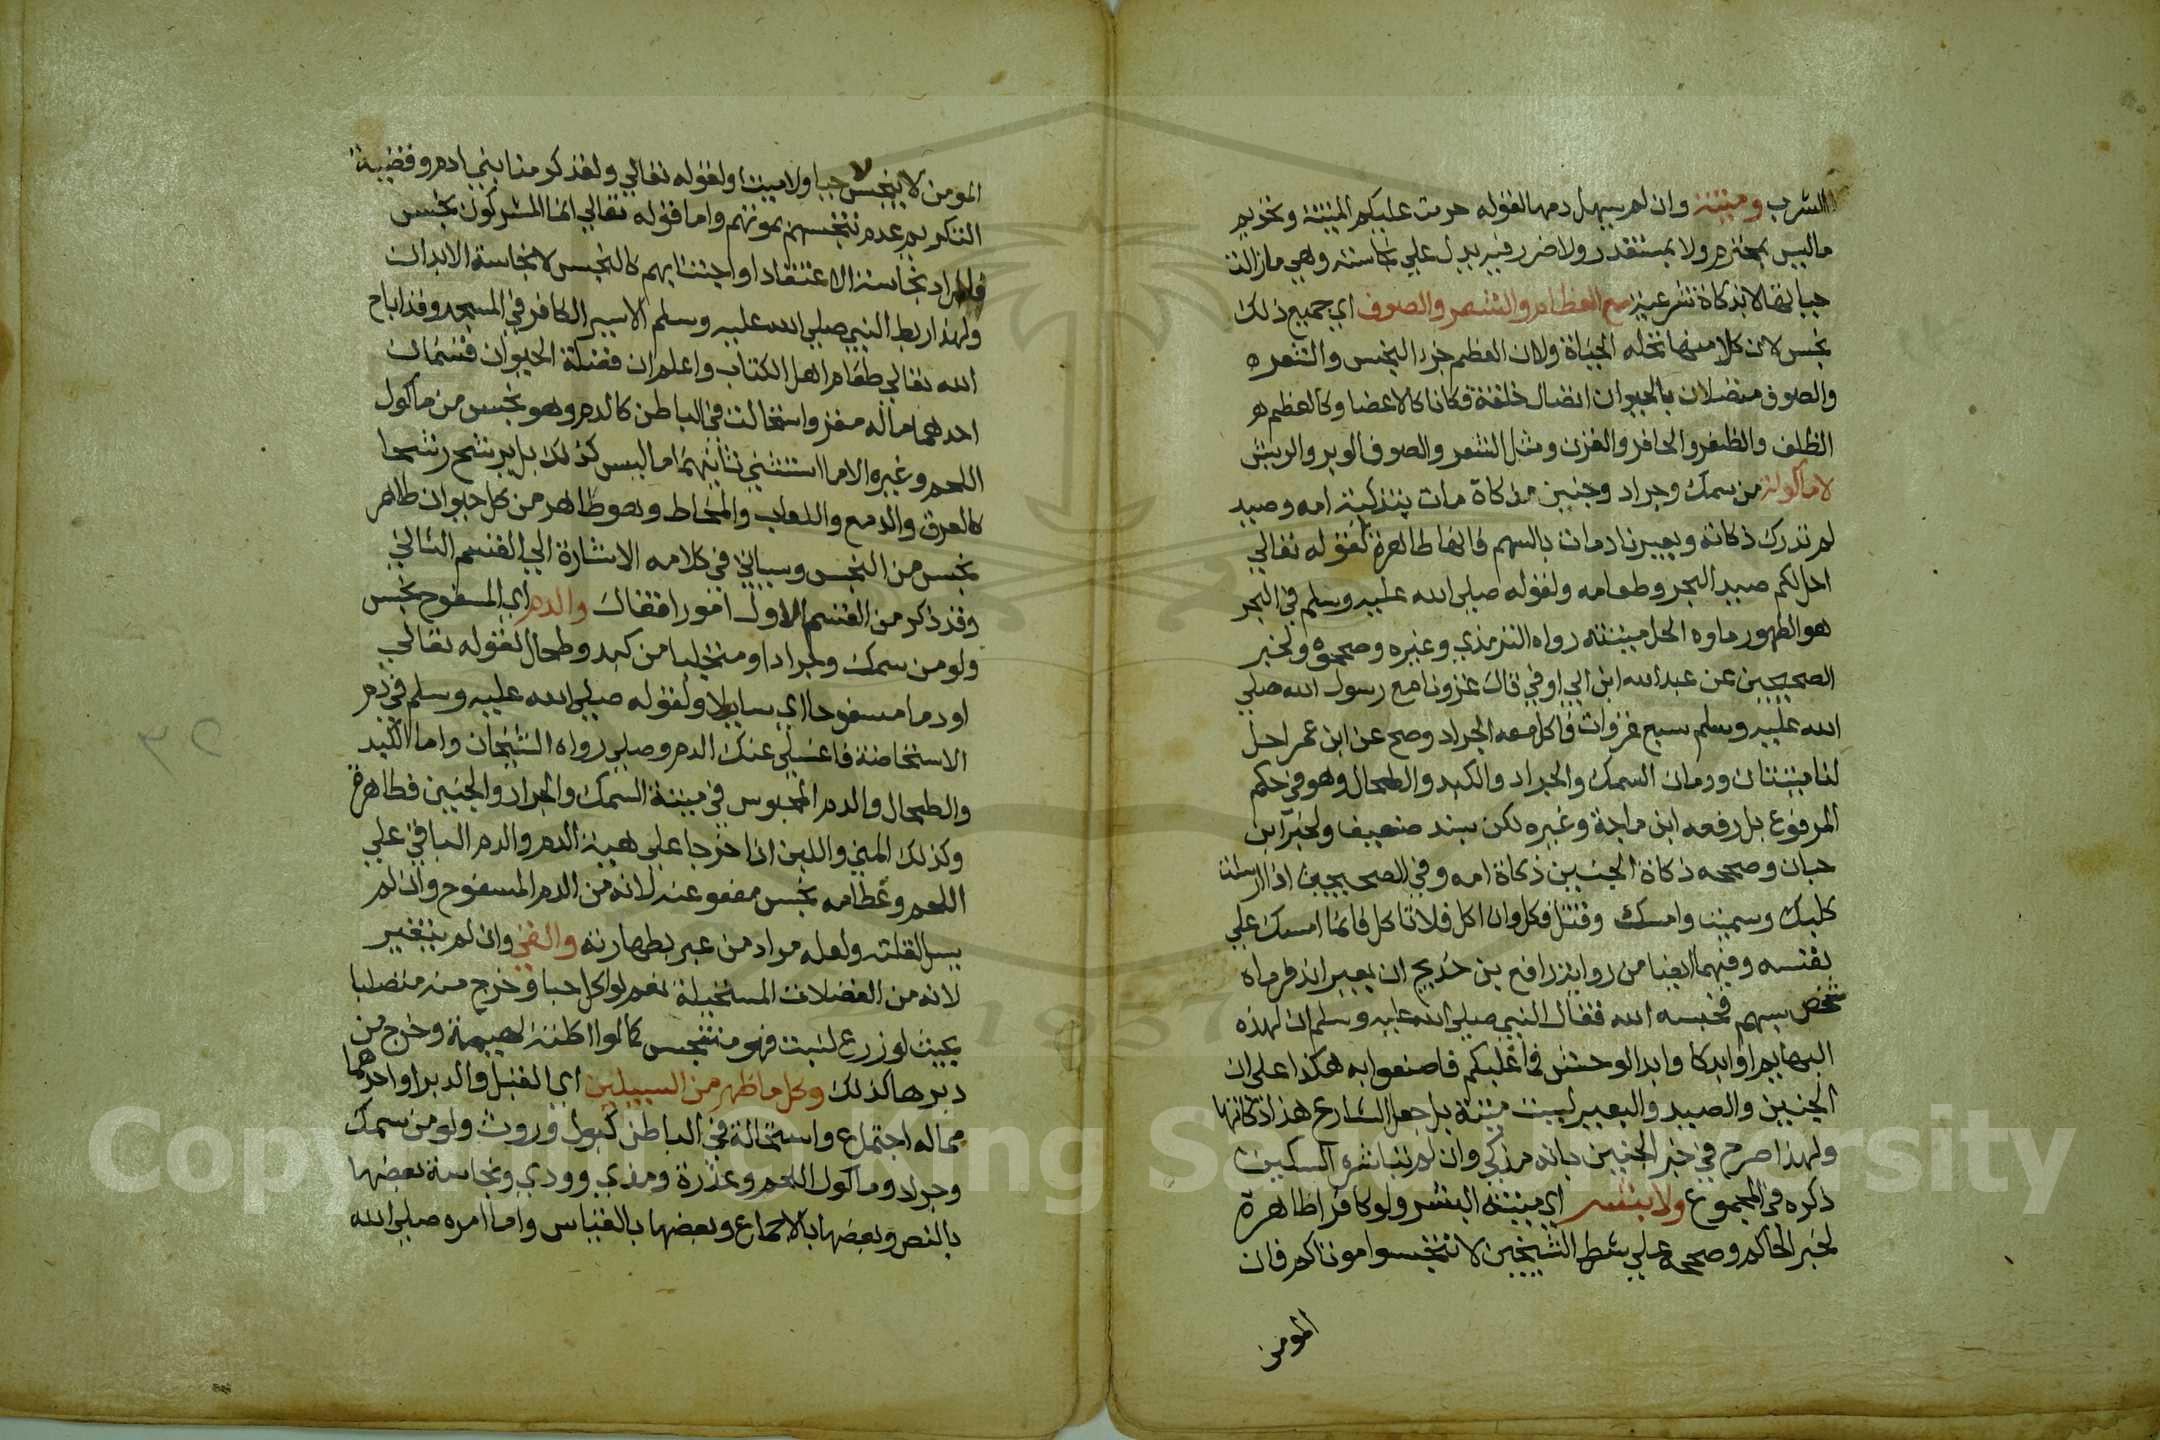 الشرب وميتة وان لم يسهل دمها لقوله حرمت عليكم الميتة وتحريم
ما ليس بمحترم ولا بمستقدر ولا ضرر فيه يدل علي نجاسته وهي ما زالت
حياتها لا بذكاة شرعية مع العظم والشعر والصوف اي جميع ذلك
نجس لان كلا منها تحله الحياة ولان العظم جزء النجس والشعر
والصوف متصلان بالحيوان اتصال خلقة فكانا كالاعضا وكالعظم
الظلف والظفر والحافر والقرن ومثل الشعر والصوف الوبر والريش
لا مأكولة من سمك وجراد وجنين مذكاة مات بتذكية امه وصيد
لم تدرك ذكاته وبعير ناد مات بالسهم فانها طاهرة لقوله تعالي
احل لكم صيد البحر وطعامه ولقوله صلي الله عليه وسلم في البحر
هو الطهور ماوه الحل ميتته رواه الترمذي وغيره وصححوه ولخبر
الصحيحين عن عبد الله ابن ابي اوفي قال غزونا مع رسول الله صلي
الله عليه وسلم سبع غزوات فاكل معه الجراد وصح عن ابن عمر احل
لنا ميتتان ودمان السمك والجراد والكبد والطحال وهو في حكم
المرفوع بل رفعه ابن ماجة وغيره لكن بسند ضعيف ولخبر ابن
حبان وصححه ذكاة الجنين ذكاة امه وفي الصحيحين اذا ارسلت
كلبك وسميت وامسك وقتل فكل وان اكل فلا تاكل فانما امسك علي
نفسه وفيهما ايضا من رواية رافع بن خديج ان بعيرا ند فرماه
شخص بسهم فحبسه الله فقال النبي صلي الله عليه وسلم ان لهذه
البهايم اوابد كاوابد الوحش فما غلبكم فاصنعوا به هكذا علي ان
الجنين والصيد والبعير ليست ميتة بل جعل الشارع هذا ذكاتها
ولهذا صرح في خبر الجنين بانه مذكي وان لم تباشره السكين
ذكره في المجموع ولا بشر اي ميتة البشر ولو كافرا طاهرة
لخبر الحاكم وصححه علي شرط الشيخين لا تنجسوا موتاكم فان
المومن
المومن لا ينجس حيا ولا ميتا ولقوله تعالي ولقد كرمنا بني ادم وقضية
التكريم عدم تنجسهم بموتهم واما قوله تعالي انما المشركون نجس
فالمراد نجاسة الاعتقاد او اجتنابهم كالنجس لا نجاسة الابدان
ولهذا ربط النبي صلي الله عليه وسلم الاسير الكافر في المسجد وقد اباح
الله تعالي طعام اهل الكتاب واعلم ان فضلة الحيوان قسمان
احدهما ما له مقر واستحالت في الباطن كالدم وهو نجس من ماكول
اللحم وغيره الا ما استثني ثانيهما ما ليس كذلك بل يرشح رشحا
كالعرق والدمع واللعاب والمخاط وهو طاهر من كل حيوان طاهر
نجس من النجس وسياتي في كلامه الاشارة الي القسم الثاني
وقد ذكر من القسم الاول امورا فقال والدم اي المسفوح نجس
ولو من سمك وجراد او متحلبا من كبد وطحال لقوله تعالي
او دما مسفوحا اي سايلا ولقوله صلي الله عليه وسلم في دم
الاستحاضة فاغسلي عنك الدم وصلي رواه الشيخان واما الكبد
والطحال والدم المحبوس في ميتة السمك والجراد والجنين فطاهرة
وكذلك المني واللبن اذا خرجا علي هيئة الدم والدم الباقي علي
اللحم وعظامه نجس معفو عنه لانه من الدم المسفوح وان لم
يسل لقلته ولعله مراد من عبر بطهارته والقي وان لم يتغير
لانه من الفضلات المستحيلة نعم لو اكل حبا وخرج منه متصلبا
بحيث لو زرع لنبت فهو متنجس كما لو اكلته بهيمة وخرج من
دبرها كذلك وكل ما ظهر من السبيلين اي القبل والدبر او احدهما
مما له اجتماع واستحالة في الباطن كبول وروث ولو من سمك
وجراد وماكول اللحم وعذرة ومذي وودي ونجاسة بعضها
بالنص وبعضها بالاجماع وبعضها بالقياس واما امره صلي الله
٣٢
Copyright © King Saud University
1957